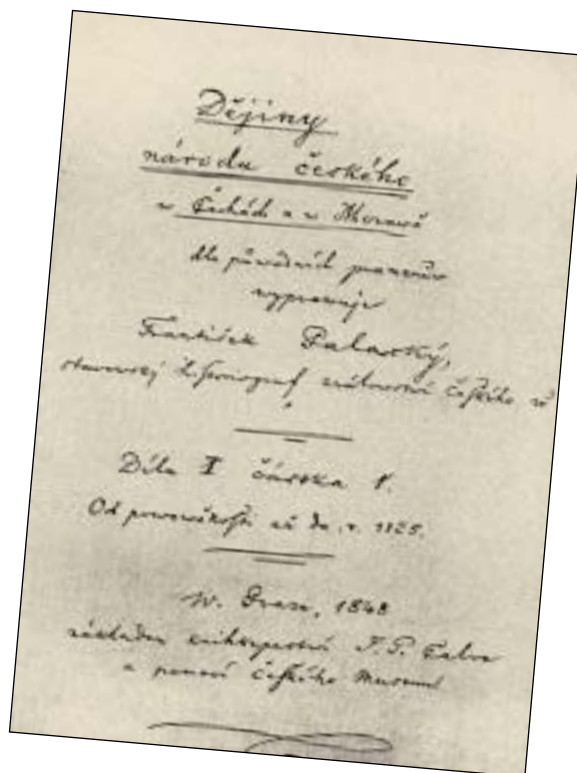 Dějiny
národu českého
w Čechách a w Morawě
dle půwodních pramenůw
wyprawuje
František Palacký,
stawowský historiograf království českého
Díla I částka 1.
Od prwowěkosti až do r. 1125.
W Praze, 1848
nákladem knihkupectví J. G. Calve
a pomocí českého Museum